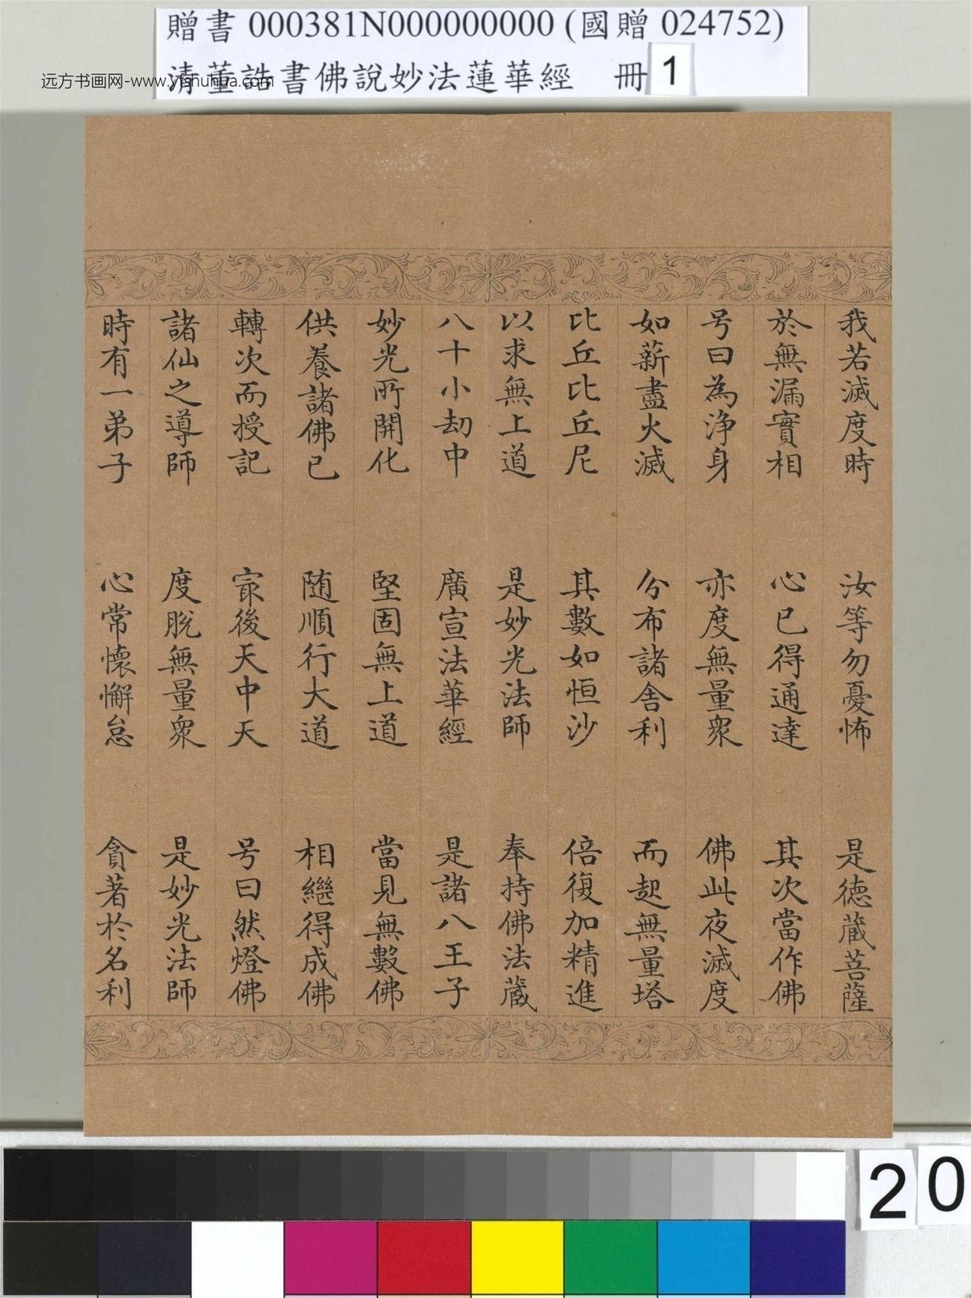 贈書 000381N000000000 (國贈 024752)
远方书画网-www.yfshuhua.com
清董誥書佛說妙法蓮華經 冊 1
我若滅度時 汝等勿憂怖 是德蔵菩薩
於無漏實相 心已得通達 其次當作佛
号曰為淨身 亦度無量衆 佛此夜滅度
如薪盡火滅 分布諸舎利 而起無量塔
比丘比丘尼 其數如恒沙 倍復加精進
以求無上道 是妙光法師 奉持佛法蔵
八十小劫中 廣宣法華經 是諸八王子
妙光所開化 堅固無上道 當見無數佛
供養諸佛已 随順行大道 相繼得成佛
轉次而授記 冣後天中天 号曰然燈佛
諸仙之導師 度脫無量衆 是妙光法師
時有一弟子 心常懐懈怠 貪著於名利
20